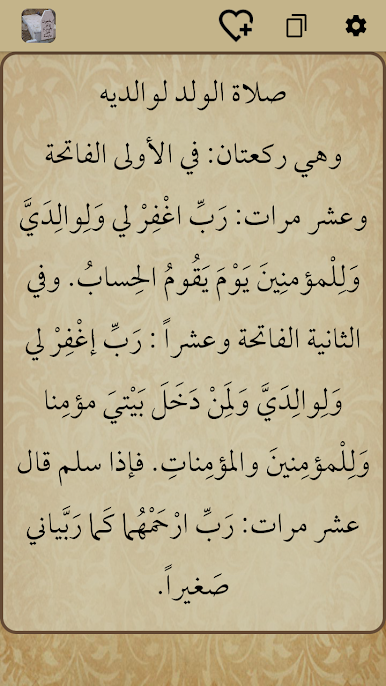 صلاة الولد لوالديه
وهي ركعتان: في الأولى الفاتحة
وعشر مرات: رَبِّ اغْفِرْ لي وَلِوالِدَيَّ
وَلِلْمؤمنِينَ يَوْمَ يَقُومُ الحِسابُ. وفي
الثانية الفاتحة وعشراً : رَبِّ إغْفِرْ لي
وَلِوالِدَيَّ وَلِمَنْ دَخَلَ بَيْتيَ مؤمِنا
وَلِلْمؤمِنينَ والمؤمِناتِ. فإذا سلم قال
عشر مرات: رَبِّ ارْحَمْهُما كَما رَبَّياني
صَغيراً.